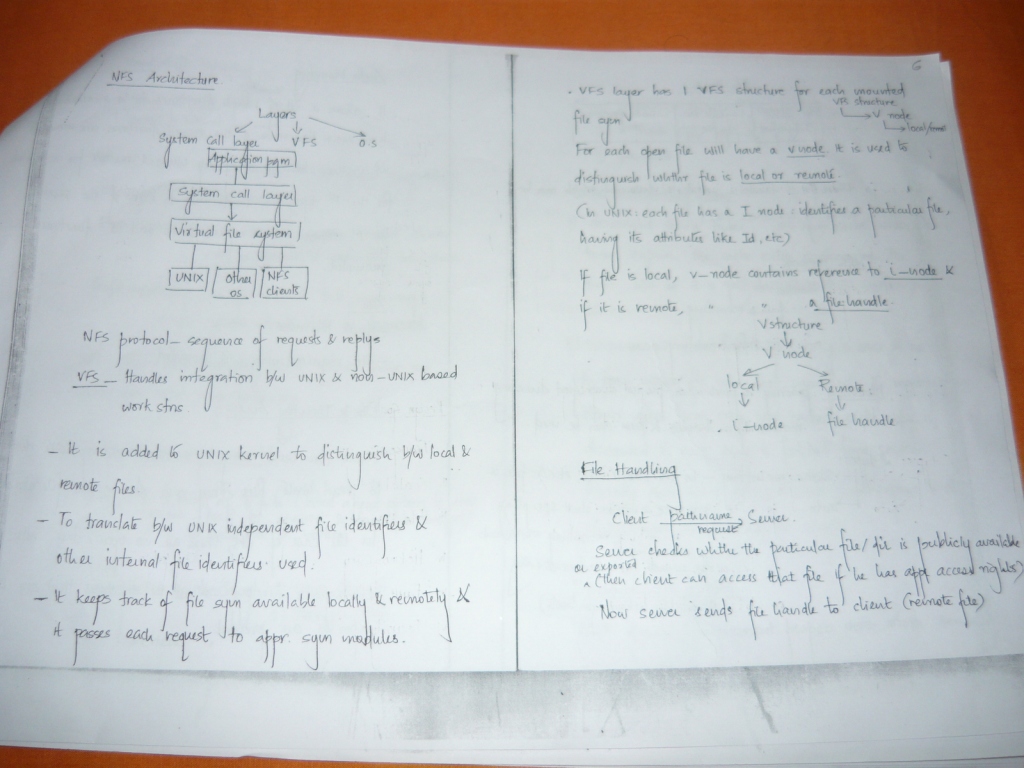 NFS Architecture
Layers
System call layer VFS OS
Application pgm
System call layer
Virtual file system
UNIX Other OS NFS clients
NFS protocol - sequence of requests & replys
VFS - Handles integration b/w UNIX & non-UNIX based
work stns.
- It is added to UNIX kernel to distinguish b/w local &
remote files.
- To translate b/w UNIX independent file identifiers &
other internal file identifiers used.
- It keeps track of file sysm available locally & remotely &
it passes each request to appr. sysm modules.
6
. VFS layer has 1 VFS structure for each mounted
file sysm
structure
V node
local/
For each open file will have a vnode it is used to
distinguish whthr file is local or remote.
(In UNIX: each file has a I node: identifies a particular file,
having its attributes like Id, etc)
If file is local, v-node contains reference to i-node &
if it is remote, " " a file handle.
V structure
V node
local Remote
i-node file handle
File Handling
Client pathname request Server
Server checks whthr the particular file/dir is publicly available
or exported
(then client can access that file if he has appr access rights)
Now server sends file handle to client (remote file)